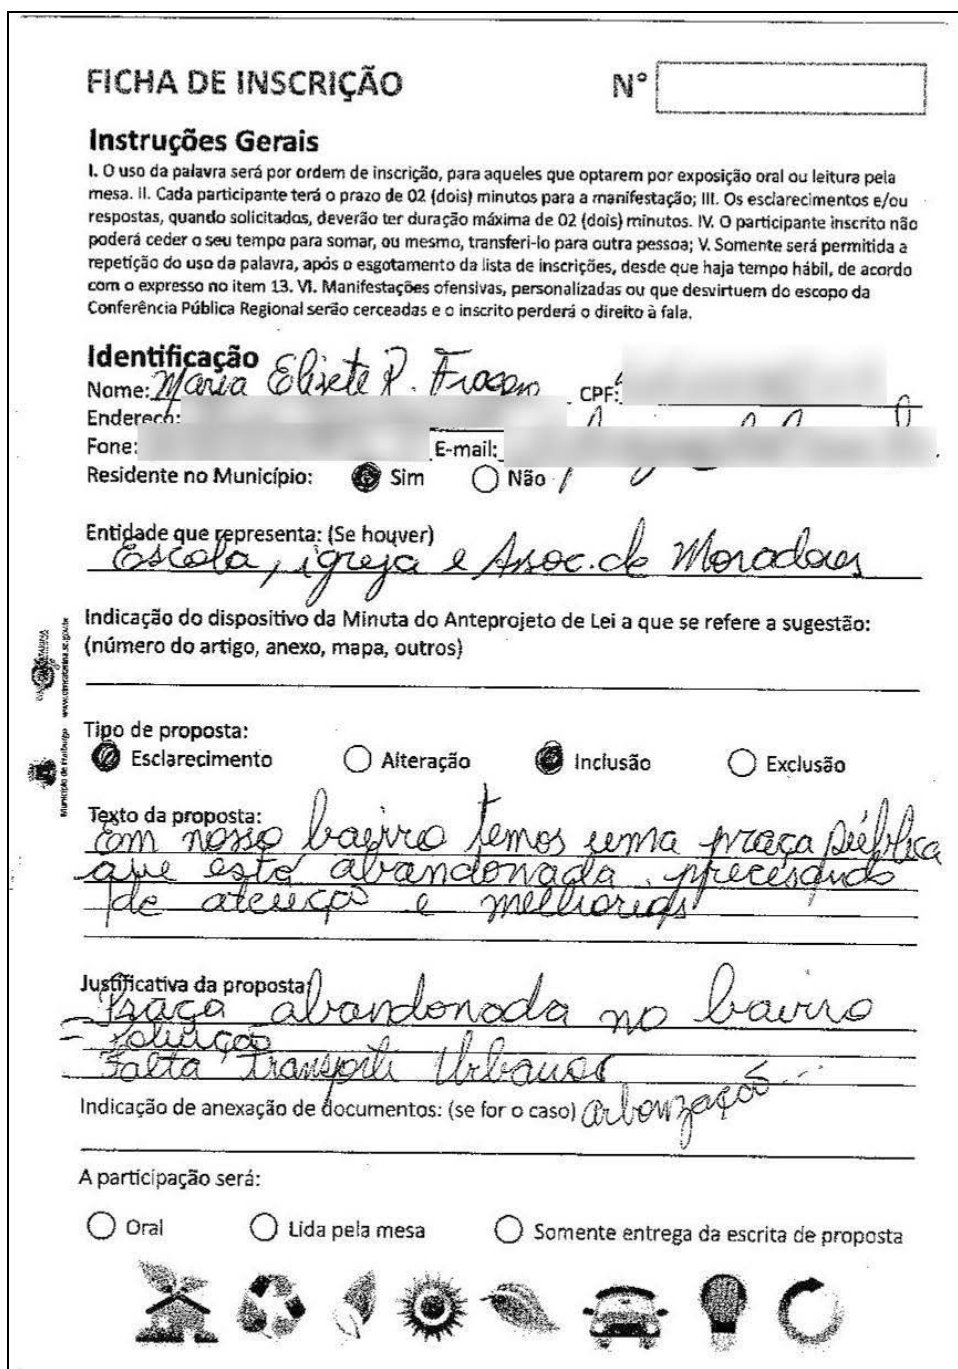 FICHA DE INSCRIÇÃO N°
Instruções Gerais
I. O uso da palavra será por ordem de inscrição, para aqueles que optarem por exposição oral ou leitura pela
mesa. II. Cada participante terá o prazo de 02 (dois) minutos para a manifestação; III. Os esclarecimentos e/ou
respostas, quando solicitados, deverão ter duração máxima de 02 (dois) minutos. IV. O participante inscrito não
poderá ceder o seu tempo para somar, ou mesmo, transferi-lo para outra pessoa; V. Somente será permitida a
repetição do uso da palavra, após o esgotamento da lista de inscrições, desde que haja tempo hábil, de acordo
com o expresso no item 13. VI. Manifestações ofensivas, personalizadas ou que desvirtuem do escopo da
Conferência Pública Regional serão cerceadas e o inscrito perderá o direito à fala.
Identificação
Nome: Maria Elisete P. CPF:
Endereço:
Fone: E-mail:
Residente no Município: Sim Não
Entidade que representa: (Se houver)
Escola, igreja e Assoc. de Moradores
Indicação do dispositivo da Minuta do Anteprojeto de Lei a que se refere a sugestão:
(número do artigo, anexo, mapa, outros)
Município de Fraiburgo
Tipo de proposta:
Esclarecimento Alteração Inclusão Exclusão
Texto da proposta:
Em nosso bairro temos uma praça pública
que está abandonada, precisando
de atenção e melhorias
Justificativa da proposta
Praça abandonada no bairro
- Poluição
Falta Transporte Urbano
Indicação de anexação de documentos: (se for o caso) Arborização
A participação será:
Oral Lida pela mesa Somente entrega da escrita de proposta